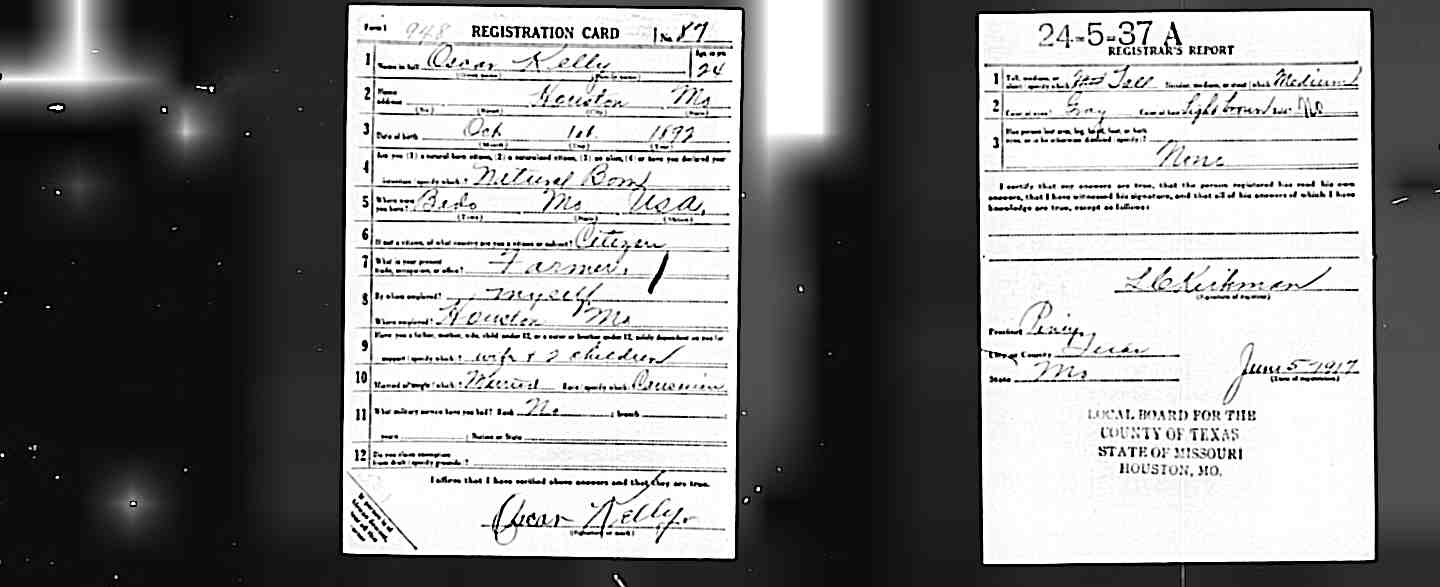 Form 1 948 REGISTRATION CARD No. 87
1 Name in full Oscar Kelly Age in yrs 24
(Given name) (Family name)
2 Home address Houston Mo
(No.) (Street) (City) (State)
3 Date of birth Oct 1st 1892
(Month) (Day) (Year)
4 Are you (1) a natural born citizen, (2) a naturalized citizen, (3) an alien, (4) or have you declared your
intention (specify which)? Natural Born
5 Where were you born? Bado Mo USA.
(Town) (State) (Nation)
6 If not a citizen, of what country are you a citizen or subject? Citizen
7 What is your present trade, occupation, or office? Farmer.
8 By whom employed? myself
Where employed? Houston Mo
9 Have you a father, mother, wife, child under 12, or a sister or brother under 12, solely dependent on you for
support (specify which)? wife & 2 children
10 Married or single (which)? Married Race (specify which)? Caucasian
11 What military service have you had? Rank No ; branch
years ; Nation or State
12 Do you claim exemption from draft (specify grounds)?
I affirm that I have verified above answers and that they are true.
Oscar Kelly
(Signature or mark)
24-5-37 A
REGISTRAR'S REPORT
1 Tall, medium, or short (specify which)? Tall Slender, medium, or stout (which)? Medium
2 Color of eyes? Gray Color of hair? Light brown Bald? No
3 Has person lost arm, leg, hand, foot, or both eyes, or is he otherwise disabled (specify)?
None
I certify that my answers are true, that the person registered has read his own
answers, that I have witnessed his signature, and that all of his answers of which I have
knowledge are true, except as follows:
L C Kirkman
(Signature of registrar)
Precinct Piney
City or County Texas
State Mo
June 5 1917
(Date of registration)
LOCAL BOARD FOR THE
COUNTY OF TEXAS
STATE OF MISSOURI
HOUSTON, MO.